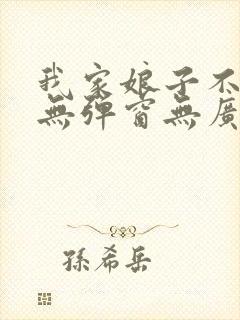 我家娘子不
無彈窗無廣
孫希岳